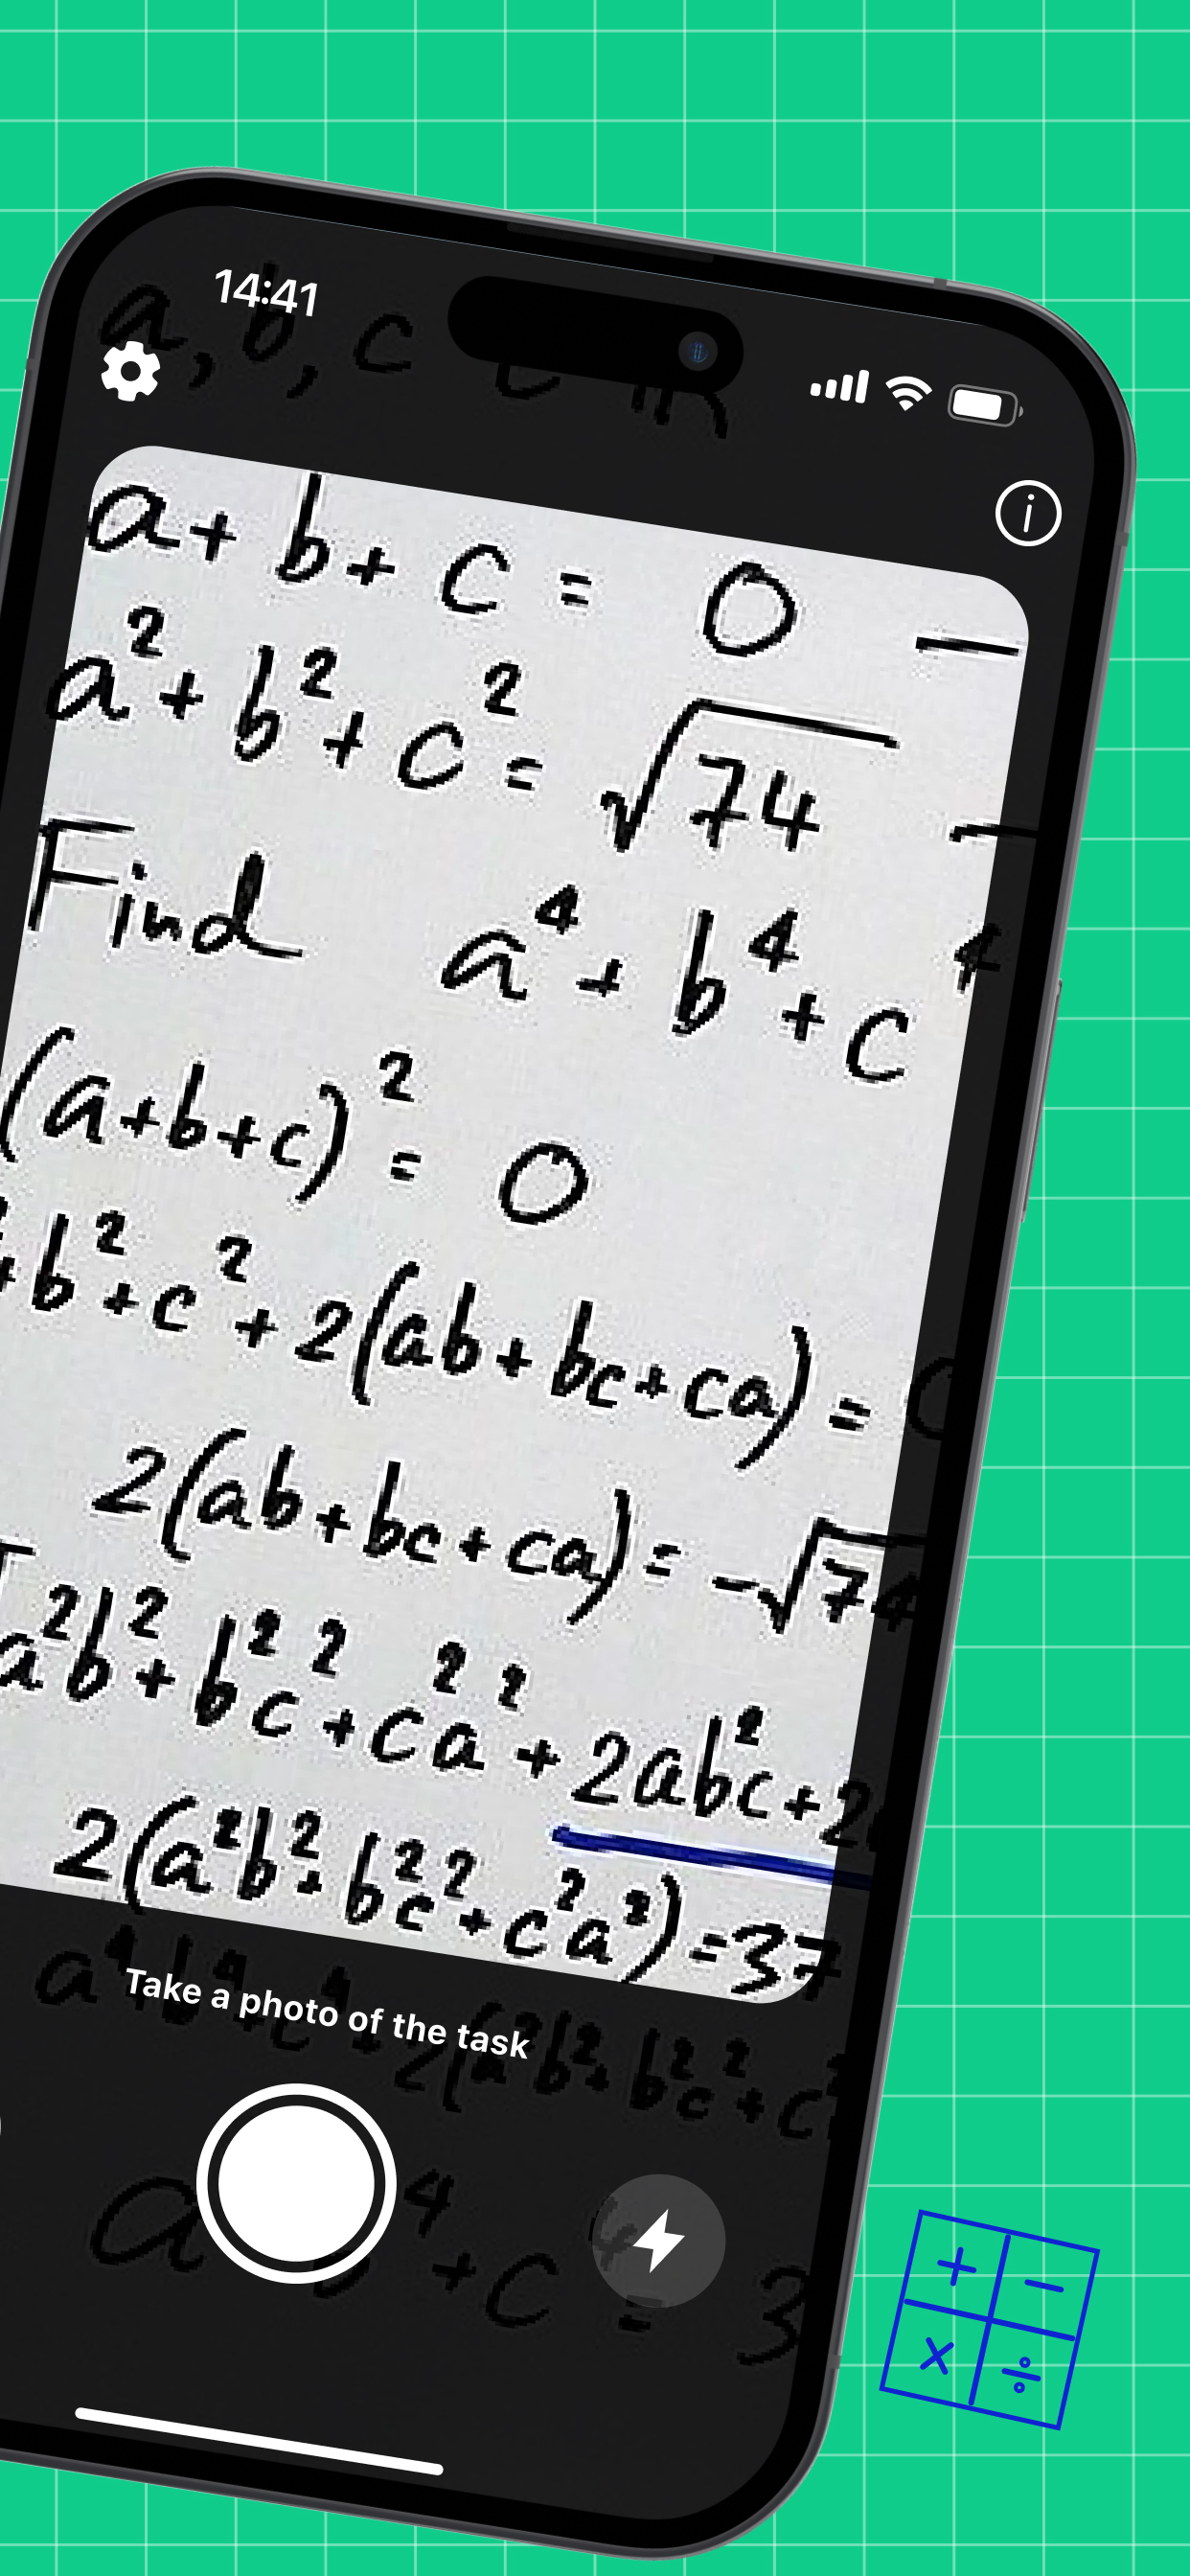 14:41
a, b, c ∈ ℝ
a + b + c = 0 —
a² + b² + c² = √74 —
Find a⁴ + b⁴ + c⁴
(a+b+c)² = 0
+b²+c²+2(ab+bc+ca) = 0
2(ab+bc+ca) = -√74
a²b²+b²c²+c²a²+2ab²c+2
2(a²b²+b²c²+c²a²)=37
Take a photo of the task
a⁴+b⁴+c⁴+2(a²b²+b²c²+c²
+ - × ÷